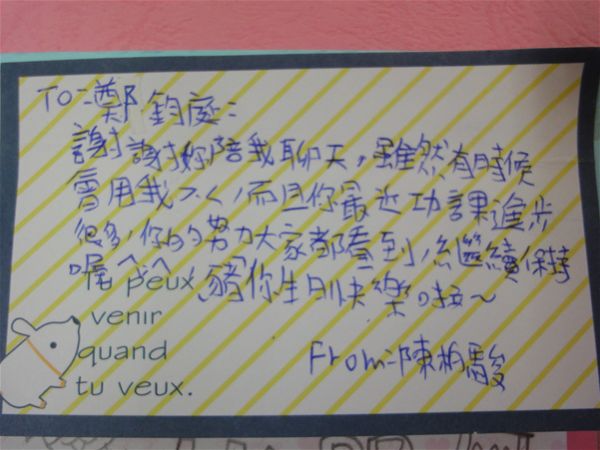 To:鄭鈞庭:
謝謝妳陪我聊天,雖然有時候
會用我ㄟㄑ,而且你最近功課進步
很多,你的努力大家都看到,繼續保持
喔^^ 豬你生日快樂啦~
Tu peux
venir
quand
tu veux.
From:陳柏駿